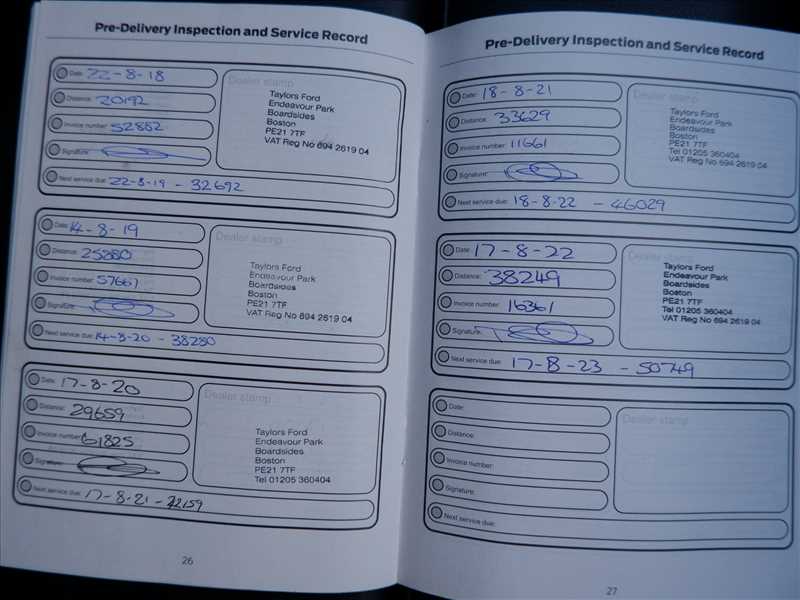 Pre-Delivery Inspection and Service Record
Date: 22-8-18
Distance: 20192
Invoice number: 52882
Signature:
Next service due: 22-8-19 - 32692
Dealer stamp
Taylors Ford
Endeavour Park
Boardsides
Boston
PE21 7TF
VAT Reg No 694 2619 04
Date: 14-8-19
Distance: 25880
Invoice number: 57661
Signature:
Next service due: 14-8-20 - 38280
Dealer stamp
Taylors Ford
Endeavour Park
Boardsides
Boston
PE21 7TF
VAT Reg No 694 2619 04
Date: 17-8-20
Distance: 29659
Invoice number: 61825
Signature:
Next service due: 17-8-21 - 42159
Dealer stamp
Taylors Ford
Endeavour Park
Boardsides
Boston
PE21 7TF
Tel 01205 360404
26
Pre-Delivery Inspection and Service Record
Date: 18-8-21
Distance: 33629
Invoice number: 11661
Signature:
Next service due: 18-8-22 - 46029
Dealer stamp
Taylors Ford
Endeavour Park
Boardsides
Boston
PE21 7TF
Tel 01205 360404
VAT Reg No 694 2619 04
Date: 17-8-22
Distance: 38249
Invoice number: 16361
Signature:
Next service due: 17-8-23 - 50749
Dealer stamp
Taylors Ford
Endeavour Park
Boardsides
Boston
PE21 7TF
Tel 01205 360404
VAT Reg No 694 2619 04
Date:
Distance:
Invoice number:
Signature:
Next service due:
Dealer stamp
27